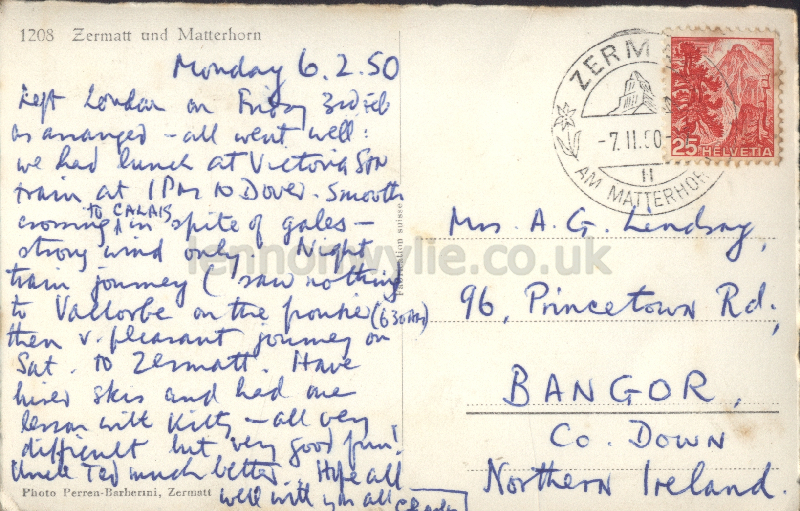 1208 Zermatt und Matterhorn
Monday 6.2.50
Left London on Friday 3rd Feb
as arranged – all went well:
we had lunch at Victoria Stn
train at 1 PM to Dover. Smooth
crossing TO CALAIS in spite of gales –
strong wind only. Night
train journey (saw nothing
to Vallorbe on the frontier (630AM)
then v. pleasant journey on
Sat. to Zermatt. Have
hired skis and had one
lesson with Kitty – all very
difficult but very good fun!
Uncle Ted much better. Hope all
well with you all
Photo Perren-Barberini, Zermatt
Fabrication suisse
ZERM
-7.II.50-
11
AM MATTERHOR
25 HELVETIA
Mrs. A. G. Lindsay,
96, Princetown Rd,
BANGOR,
Co. Down
Northern Ireland.
lennonwylie.co.uk